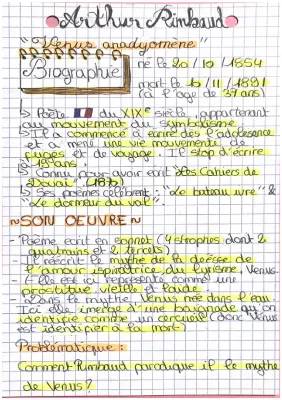 Arthur Rimbaud
"Vénus anadyomène"
Biographie
né le 20/10/1854
mort le 10/11/1891
(à l'age de 37 ans)
↳ Poète 🇫🇷 du XIXe siècle, appartenant
au mouvement du symbolisme.
↳ Il a commencé à écrire dès l'adolescence
et a mené une vie mouvementée de
fugues et de voyage. Il stop d'écrire
ans.
↳ Connu pour avoir écrit "Les Cahiers de
Douai" (1870)
↳ Ses poèmes célèbrent: "Le bateau ivre" &
"Le dormeur du val".
~SON OEUVRE~
- Poème écrit en sonnet (4 strophes dont 2
quatrains et 2 tercets)
- Il réécrit le mythe de la déesse de
l'amour ispiratrice du lyrisme, Venus.
- Elle est ici représenté comme une
prostituée vieille et laide.
- Dans le mythe, Venus née dans l'eau.
Ici elle émerge d'une baignade qu'on
identifie comme un cercueil (donc Venus
est identifier à la mort)
Problématique :
Comment Rimbaud parodique il le mythe
de Venus?